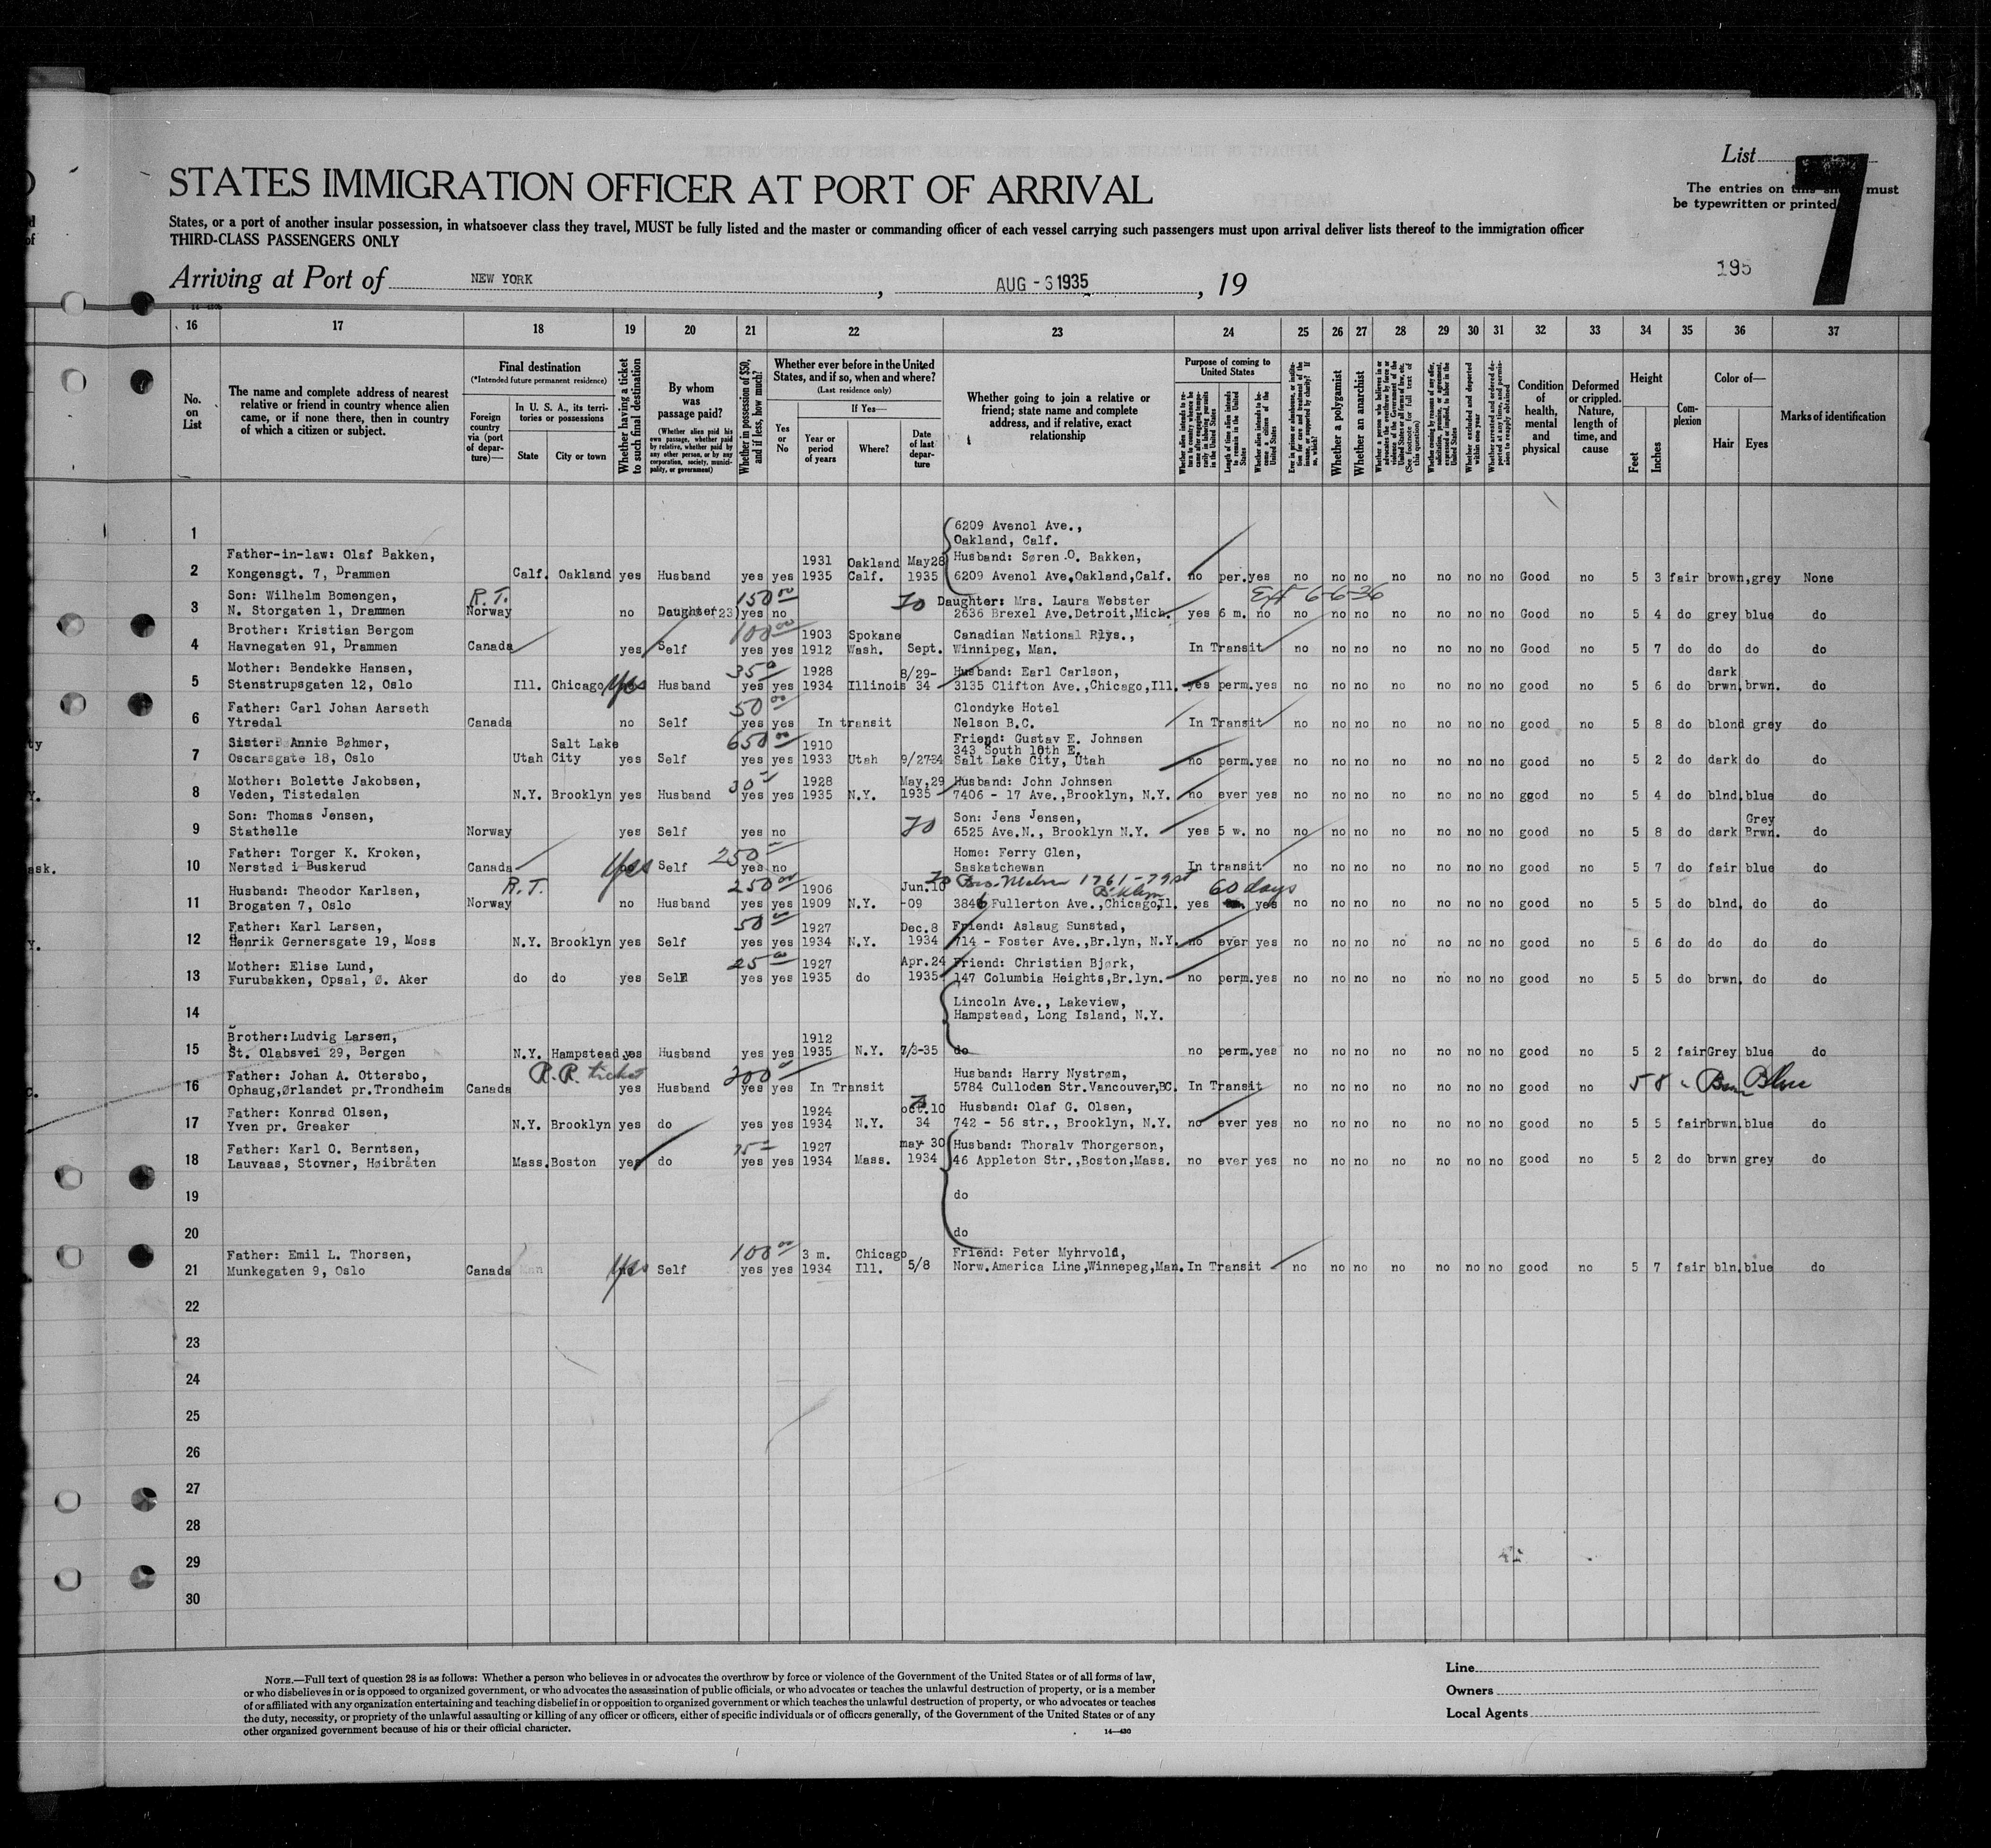 List 7
The entries on this sheet must
be typewritten or printed
STATES IMMIGRATION OFFICER AT PORT OF ARRIVAL
States, or a port of another insular possession, in whatsoever class they travel, MUST be fully listed and the master or commanding officer of each vessel carrying such passengers must upon arrival deliver lists thereof to the immigration officer
THIRD-CLASS PASSENGERS ONLY
195
Arriving at Port of NEW YORK, AUG - 6 1935, 19
16 17 18 19 20 21 22 23 24 25 26 27 28 29 30 31 32 33 34 35 36 37
No. on List
The name and complete address of nearest relative or friend in country whence alien came, or if none there, then in country of which a citizen or subject.
Final destination
(*Intended future permanent residence)
Foreign country via (port of departure)—
In U. S. A., its territories or possessions
State
City or town
Whether having a ticket to such final destination
By whom was passage paid?
(Whether alien paid his own passage, whether paid by relative, whether paid by any other person, or by any corporation, society, municipality, or government)
Whether in possession of $50, and if less, how much?
Whether ever before in the United States, and if so, when and where?
(Last residence only)
Yes or No
If Yes—
Year or period of years
Where?
Date of last departure
Whether going to join a relative or friend; state name and complete address, and if relative, exact relationship
Purpose of coming to United States
Length of time alien intends to remain in the United States
Whether alien intends to become a citizen of the United States
Whether a polygamist
Whether an anarchist
Condition of health, mental and physical
Deformed or crippled. Nature, length of time, and cause
Height
Feet
Inches
Complexion
Color of—
Hair
Eyes
Marks of identification
1 6209 Avenol Ave.,
Oakland, Calf.
Father-in-law: Olaf Bakken, 1931 Oakland May28 Husband: Søren O. Bakken,
2 Kongensgt. 7, Drammen Calf. Oakland yes Husband yes yes 1935 Calf. 1935 6209 Avenol Ave,Oakland,Calf. no per. yes no no no no no no no Good no 5 3 fair brown,grey None
Son: Wilhelm Bomengen, R.T. 150 00 Daughter: Mrs. Laura Webster Ext 6-6-36
3 N. Storgaten 1, Drammen Norway no Daughter(23) yes no 2636 Brexel Ave.Detroit,Mich. yes 6 m. no no no no no no no no Good no 5 4 do grey blue do
Brother: Kristian Bergom 100 00 1903 Spokane Canadian National Rlys.,
4 Havnegaten 91, Drammen Canada yes Self yes yes 1912 Wash. Sept. Winnipeg, Man. In Transit no no no no no no no Good no 5 7 do do do do
Mother: Bendekke Hansen, 35 1928 8/29- Husband: Earl Carlson, dark
5 Stenstrupsgaten 12, Oslo Ill. Chicago Yes Husband yes yes 1934 Illinois 34 3135 Clifton Ave.,Chicago,Ill. yes perm. yes no no no no no no no good no 5 6 do brwn, brwn. do
Father: Carl Johan Aarseth 50 00 Clondyke Hotel
6 Ytredal Canada no Self yes yes In transit Nelson B.C. In Transit no no no no no no no good no 5 8 do blond grey do
Sister: Annie Bøhmer, Salt Lake 650 00 1910 Friend: Gustav E. Johnsen
343 South 10th E.
7 Oscarsgate 18, Oslo Utah City yes Self yes yes 1933 Utah 9/2734 Salt Lake City, Utah no perm. yes no no no no no no no good no 5 2 do dark do do
Mother: Bolette Jakobsen, 30 1928 May,29 Husband: John Johnsen
8 Veden, Tistedalen N.Y. Brooklyn yes Husband yes yes 1935 N.Y. 1935 7406 - 17 Ave.,Brooklyn, N.Y. no ever yes no no no no no no no good no 5 4 do blnd, blue do
Son: Thomas Jensen, Son: Jens Jensen, Grey
9 Stathelle Norway yes Self yes no 6525 Ave.N., Brooklyn N.Y. yes 5 w. no no no no no no no no good no 5 8 do dark Brwn. do
Father: Torger K. Kroken, 250 Home: Ferry Glen,
10 Nerstad i Buskerud Canada Yes Self yes no Saskatchewan In transit no no no no no no no good no 5 7 do fair blue do
Husband: Theodor Karlsen, R.T. 250 00 1906 Jun.10 1761-79 st 60 days
11 Brogaten 7, Oslo Norway no Husband yes yes 1909 N.Y. -09 3846 Fullerton Ave.,Chicago,Il. yes yes no no no no no no no good no 5 5 do blnd, do do
Father: Karl Larsen, 50 00 1927 Dec.8 Friend: Aslaug Sunstad,
12 Henrik Gernersgate 19, Moss N.Y. Brooklyn yes Self yes yes 1934 N.Y. 1934 714 - Foster Ave.,Br.lyn, N.Y. no ever yes no no no no no no no good no 5 6 do do do do
Mother: Elise Lund, 25 00 1927 Apr.24 Friend: Christian Bjørk,
13 Furubakken, Opsal, Ø. Aker do do yes Self yes yes 1935 do 1935 147 Columbia Heights,Br.lyn. no perm. yes no no no no no no no good no 5 5 do brwn, do do
14 Lincoln Ave., Lakeview,
Hampstead, Long Island, N.Y.
Brother:Ludvig Larsen, 1912
15 St. Olabsvei 29, Bergen N.Y. Hampstead yes Husband yes yes 1935 N.Y. 7/3-35 do no perm. yes no no no no no no no good no 5 2 fair Grey blue do
Father: Johan A. Ottersbo, R.R. ticket 200 00 Husband: Harry Nystrøm,
16 Ophaug,Ørlandet pr.Trondheim Canada yes Husband yes yes In Transit 5784 Culloden Str.Vancouver,BC. In Transit no no no no no no no good no 5 8 Brn Blue
Father: Konrad Olsen, 1924 oct.10 Husband: Olaf G. Olsen,
17 Yven pr. Greaker N.Y. Brooklyn yes do yes yes 1934 N.Y. 34 742 - 56 str., Brooklyn, N.Y. no ever yes no no no no no no no good no 5 5 fair brwn, blue do
Father: Karl O. Berntsen, 75 1927 may 30 Husband: Thoralv Thorgerson,
18 Lauvaas, Stovner, Høibråten Mass. Boston yes do yes yes 1934 Mass. 1934 46 Appleton Str.,Boston,Mass. no ever yes no no no no no no no good no 5 2 do brwn grey do
19 do
20 do
Father: Emil L. Thorsen, 100 00 3 m. Chicago Friend: Peter Myhrvold,
21 Munkegaten 9, Oslo Canada Yes Self yes yes 1934 Ill. 5/8 Norw.America Line,Winnepeg,Man. In Transit no no no no no no no good no 5 7 fair bln, blue do
22
23
24
25
26
27
28
29
30
NOTE.—Full text of question 28 is as follows: Whether a person who believes in or advocates the overthrow by force or violence of the Government of the United States or of all forms of law,
or who disbelieves in or is opposed to organized government, or who advocates the assassination of public officials, or who advocates or teaches the unlawful destruction of property, or is a member
of or affiliated with any organization entertaining and teaching disbelief in or opposition to organized government or which teaches the unlawful destruction of property, or who advocates or teaches
the duty, necessity, or propriety of the unlawful assaulting or killing of any officer or officers, either of specific individuals or of officers generally, of the Government of the United States or of any
other organized government because of his or their official character.
14—430
Line
Owners
Local Agents